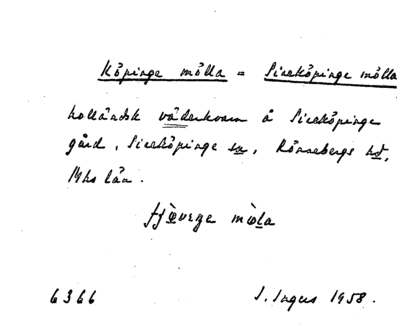 Köpinge mölla = Sireköpinge mölla
holländsk väderkvarn å Sireköpinge
gård, Sireköpinge sn, Rönnebergs hd,
Mhs län.
mø̀la
6366 S. Ingers 1958.